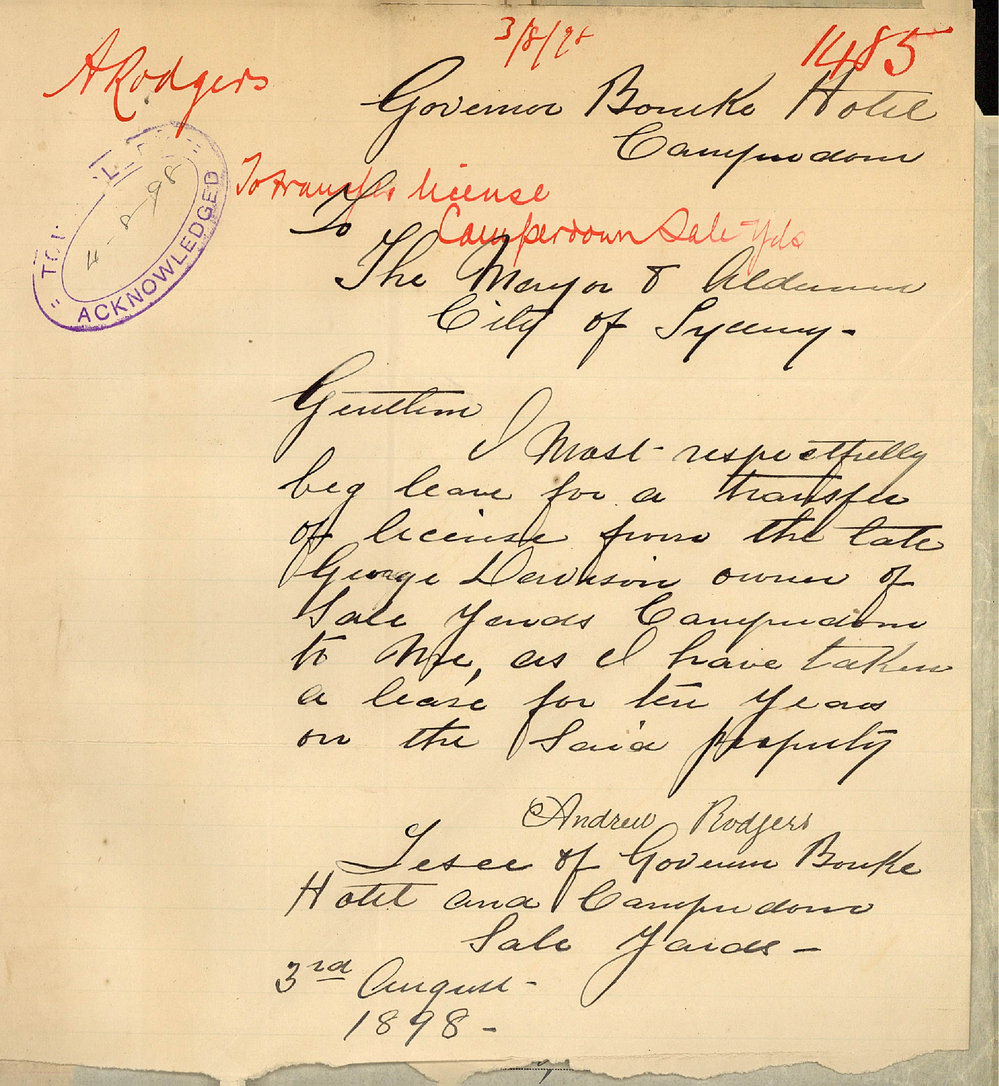 3/8/98
1485
A Rodgers
Governor Bourke Hotel
Camperdown
To transfer license
Camperdown Sale Yds
TOWN CLERK
4-8-98
ACKNOWLEDGED
To
The Mayor & Aldermen
City of Sydney -
Gentlemen
I Most respectfully
beg leave for a transfer
of license from the late
George Davison owner of
Sale Yards Camperdown
to Me, as I have taken
a lease for ten years
on the said property
Andrew Rodgers
Lesee of Governor Bourke
Hotel and Camperdown
Sale Yards -
3rd August -
1898 -